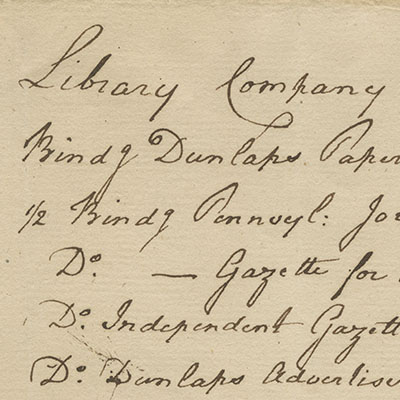 Library Company
Bindg Dunlaps Paper
1/2 Bindg Pennsyl: Jou
Do. — Gazette for
Do. Independent Gazett
Do. Dunlaps Advertise